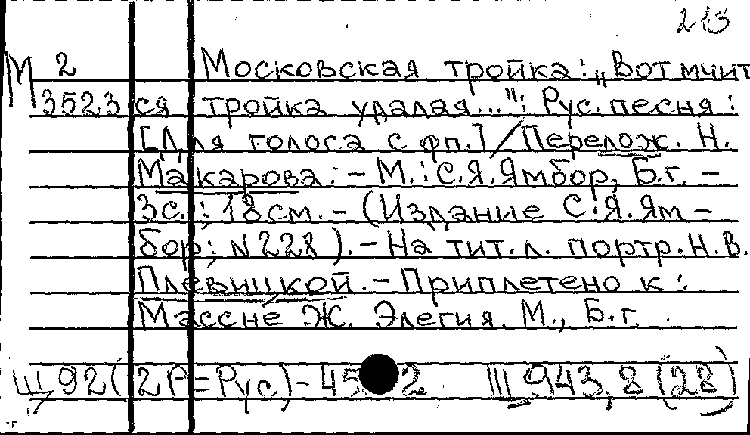 213
М 2 Московская тройка: „Вот мчит
3523 ся тройка удалая...": Рус. песня:
[Для голоса с фп.] / Перелож. Н.
Макарова: - М.: С.Я. Ямбор, Б.г. -
3с.; 18 см. - (Издание С.Я. Ям-
бор; N 228). - На тит. л. портр. Н.В.
Плевицкой. - Приплетено к:
Массне Ж. Элегия. М., Б.г.
Щ 92(2Р=Рус)-45 2 Щ 943,8(28)